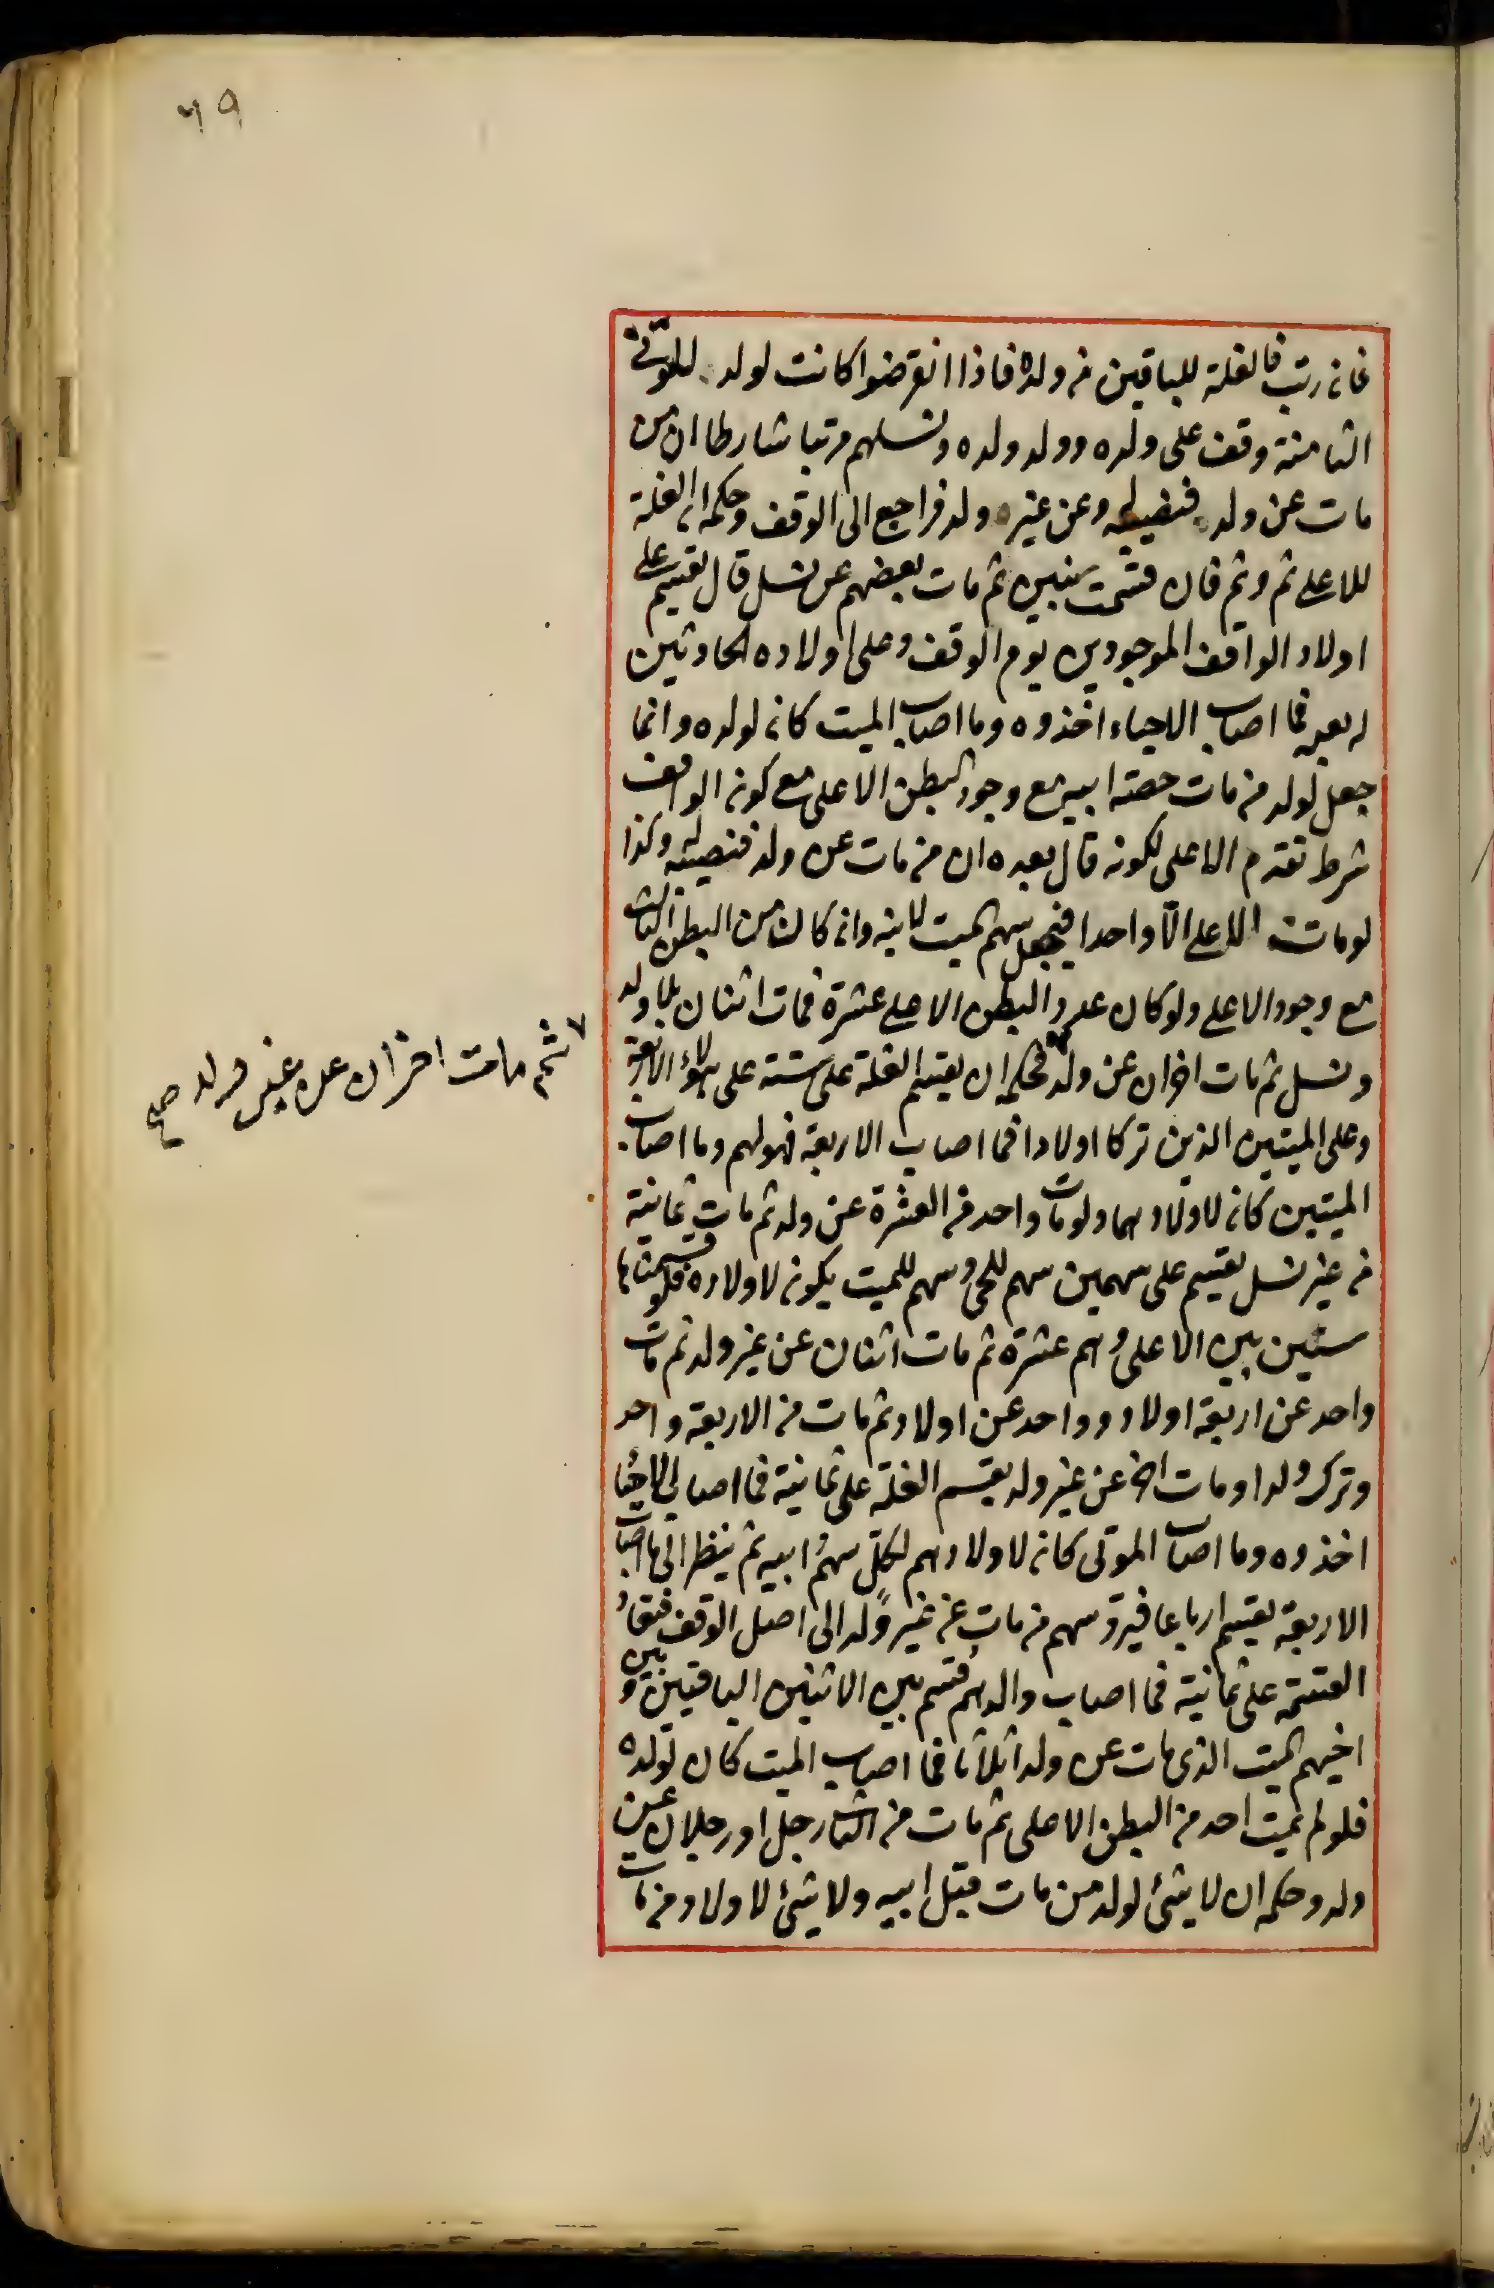 ٦٩
فان رتب فالغلة للباقين من ولده فاذا انقرضوا كانت لولد المتوفى
الثامنة وقف على ولده وولد ولده ونسلهم مرتبا شارطا ان من
مات عن ولد فنصيبه له وعن غير ولد فراجع الى الوقف وحكمه ان الغلة
للاعلى ثم وثم فان قسمت سنين ثم مات بعضهم عن نسل قال تقسم على
اولاد الواقف الموجودين يوم الوقف وعلى اولاده الحادثين
له بعده فما اصاب الاحياء اخذوه وما اصاب الميت كان لولده وانما
جعل لولد من مات حصة ابيه مع وجود البطن الاعلى مع كون الواقف
شرط تقدم الاعلى لكونه قال بعده ان من مات عن ولد فنصيبه له وكذا
لو مات الاعلى الا واحدا فيجعل سهم الميت لابنه وان كان من البطن الثالث
مع وجود الاعلى ولو كان عدد البطن الاعلى عشرة فمات اثنان بلا ولد
ونسل ثم مات اخران عن ولد فحكمه ان يقسم الغلة على ستة على هؤلاء الاربعة
وعلى الميتين الذين تركا اولادا فما اصاب الاربعة فهو لهم وما اصاب
الميتين كان لاولادهما ولو مات واحد من العشرة عن ولد ثم مات ثمانية
من غير نسل يقسم على سهمين سهم للحى وسهم للميت يكون لاولاده فلو قسمناها
سنين بين الاعلى وهم عشرة ثم مات اثنان عن غير ولد ثم مات
واحد عن اربعة اولاد وواحد عن اولاد ثم مات من الاربعة واحد
وترك ولدا ومات اخر عن غير ولد يقسم الغلة على ثمانية فما اصاب الاحياء
اخذوه وما اصاب الموتى كان لاولادهم لكل سهم ابيه ثم ينظر الى ما اصاب
الاربعة يقسم ارباعا فيرد سهم من مات عن غير ولد الى اصل الوقف فتعاد
القسمة على ثمانية فما اصاب والدهم قسم بين الاثنين الباقيين وبين
اخيهم الميت الذى مات عن ولد اثلاثا فما اصاب الميت كان لولده
فلو لم يمت احد من البطن الاعلى ثم مات من الثانى رجل او رجلان عن
ولد وحكمه ان لا شئ لولد من مات قبل ابيه ولا شئ لاولاد من مات
ثم مات اخران عن غير ولد صح